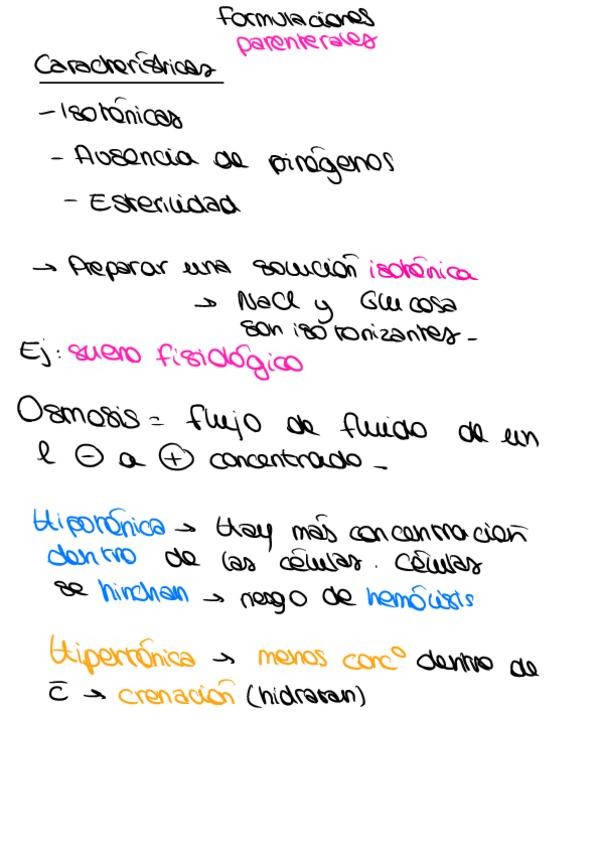 Formulaciones
parenterales
Características
- Isotónicas
- Ausencia de pirógenos
- Esterilidad
→ Preparar una solución isotónica
→ NaCl y Glucosa
son isotonizantes -
Ej: suero fisiológico
Osmosis = flujo de fluido de un
l ⊖ a ⊕ concentrado -
Hipotónica → Hay más concentración
dentro de las células. Células
se hinchan → riesgo de hemólisis
Hipertónica → menos concº dentro de
c̄ → crenación (hidratan)